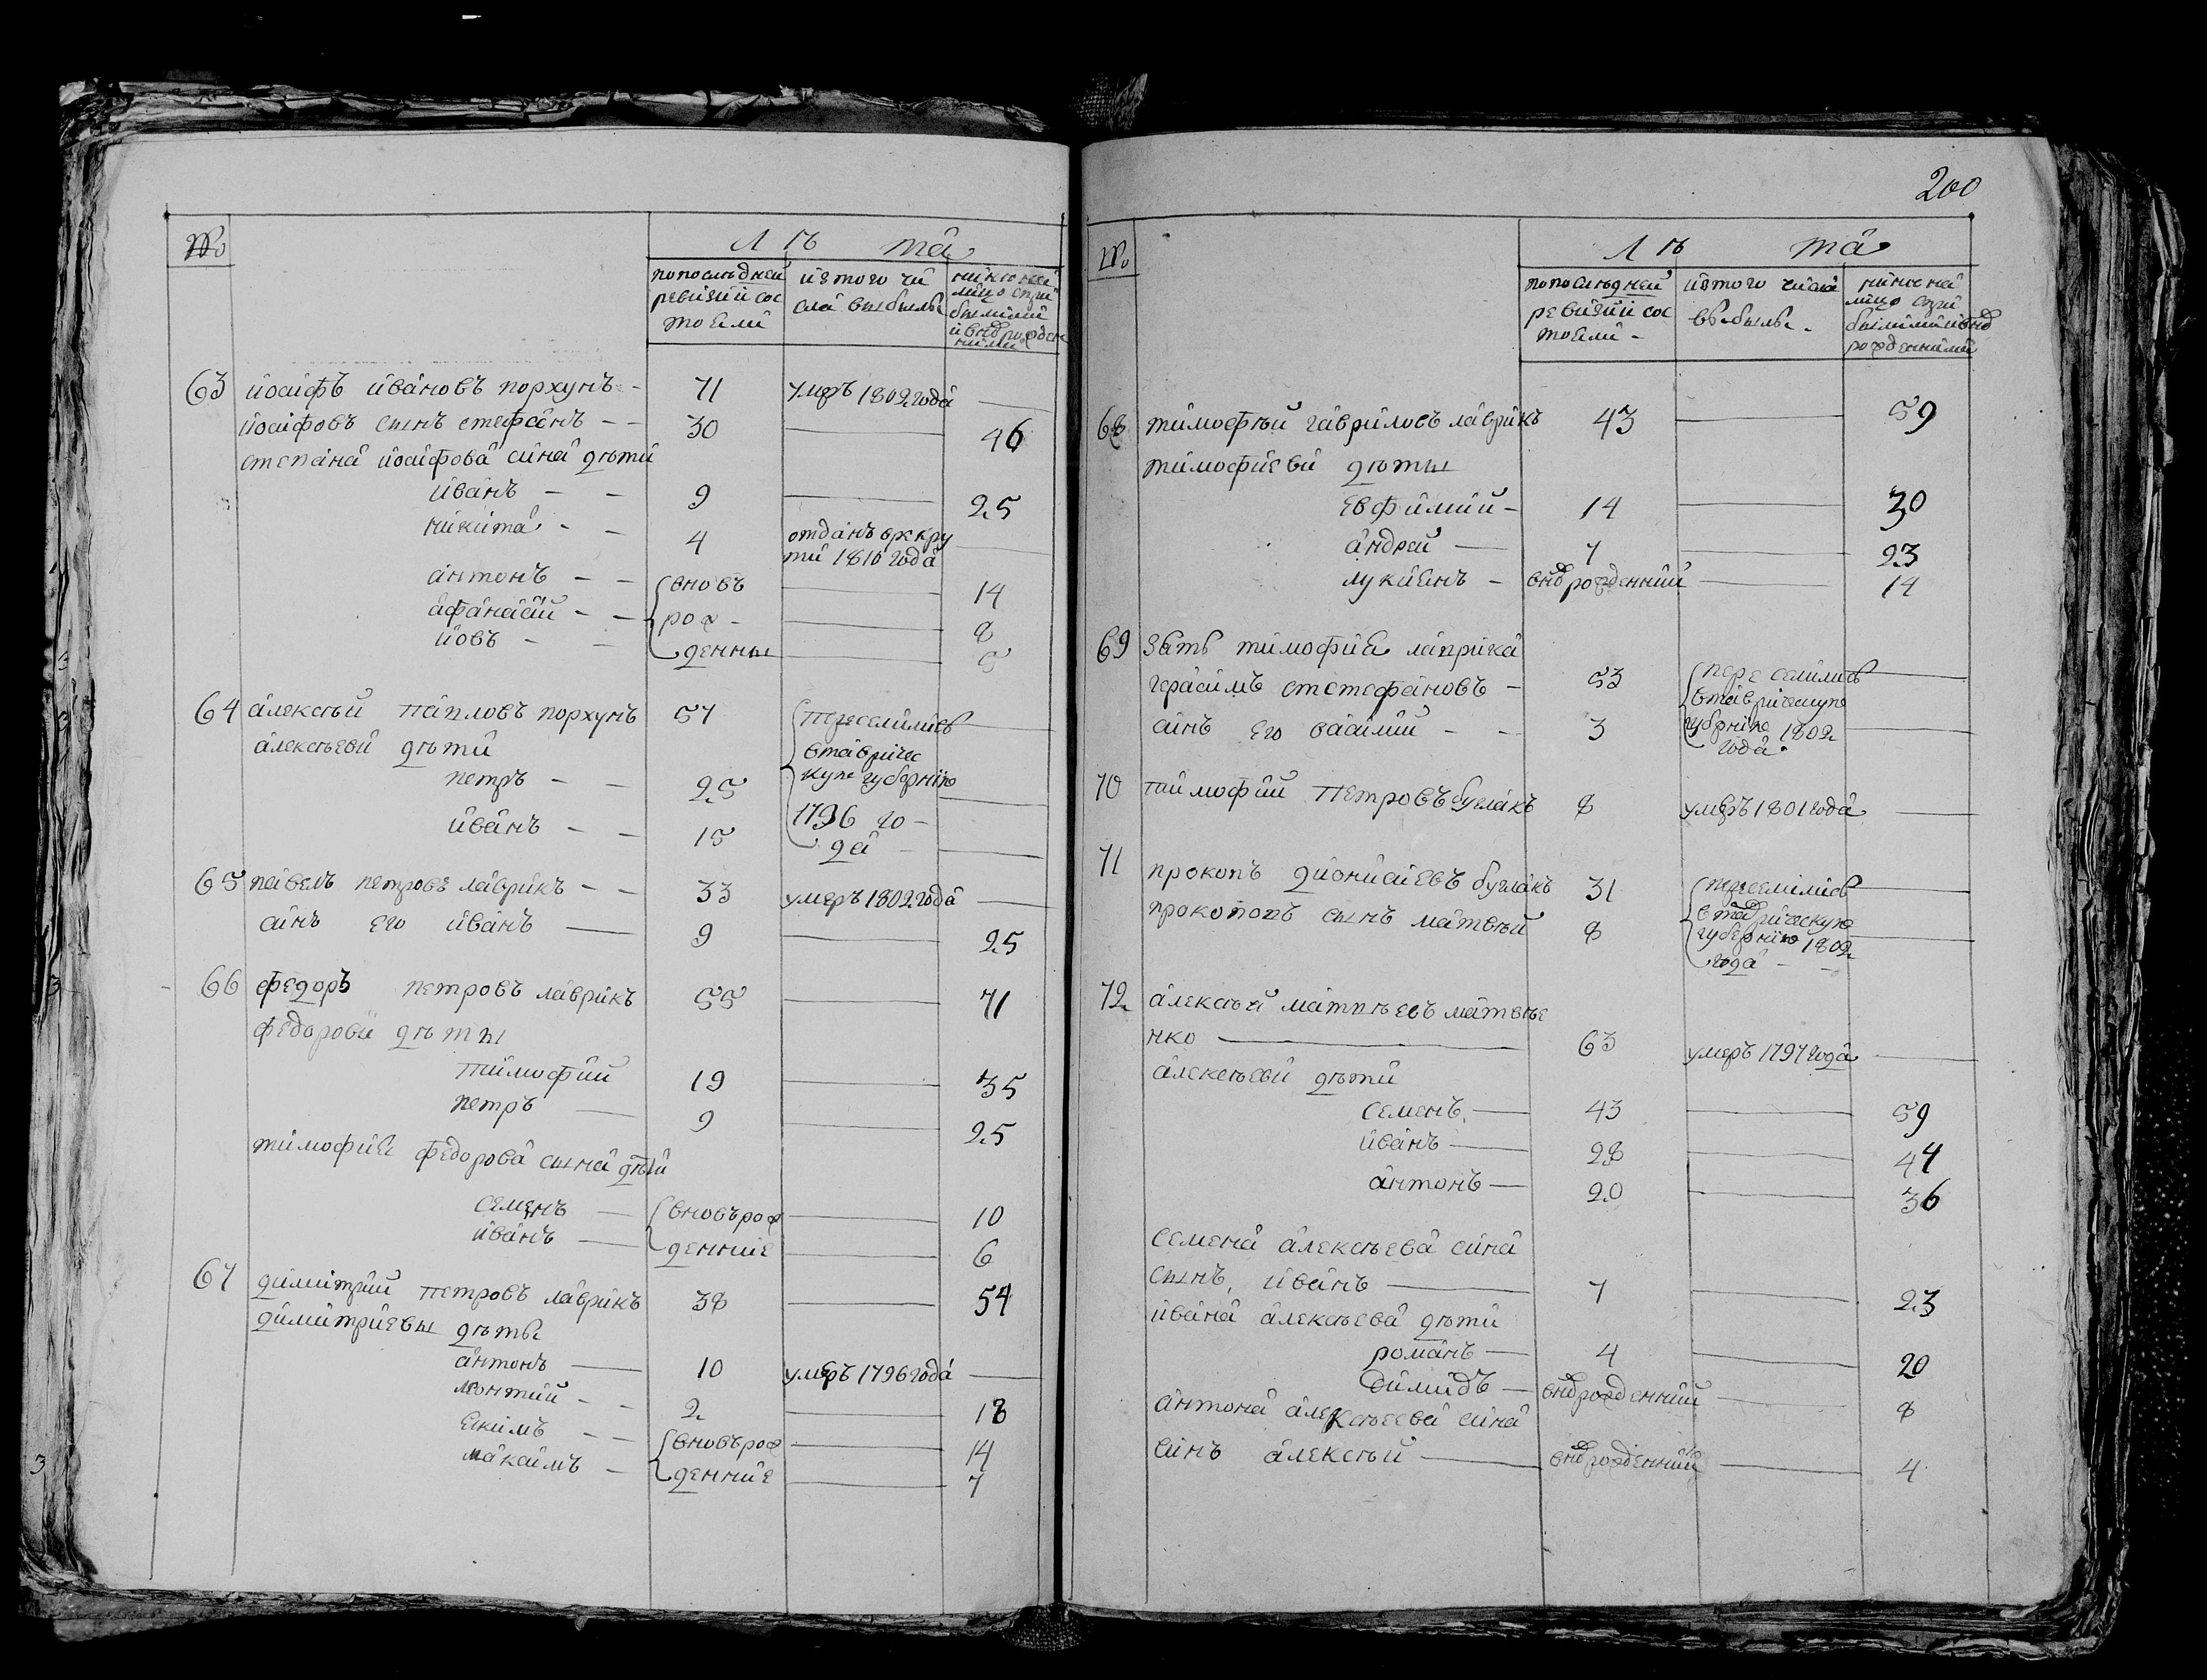 №
Лѣ та
попослѣдней ревизїи состоели
изтого числа выбыль
нинюнали лицо сприбылими ивновьрожденними
63 їосифъ ивановъ порхунъ - 71 умеръ 1802 года —
їосифовъ сынъ стефанъ - - 30 — 46
степана їосифова сина дѣти
иванъ - - 9 — 25
никита - - 4 отданъ врекру
ти 1810 года —
антонъ - - вновъ — 14
афанасий - - рож- — 8
иовъ - - денны — 5
64 алексѣй павловъ порхунъ 57 переселились —
алексѣеви дѣти втавричес
петръ - - 25 кую губернїю —
иванъ - - 15 1796 го-
да —
65 павелъ петровъ лаврикъ - - 33 умеръ 1802 года —
синъ его иванъ — 9 — 25
66 федоръ петровъ лаврикъ 55 — 71
федорови дѣти
тимофий 19 — 35
петръ — 9 — 25
тимофиа федорова сына дѣти
семенъ — вновърож — 10
иванъ — денние — 6
67 димитрий петровъ лаврикъ 38 — 54
димитриевы дѣты
антонъ — 10 умеръ 1796 года —
леонтий - - 2 — 18
екимъ - - вновърож — 14
максимъ - денние — 7
200
№
Лѣ та
попослѣдней ревизїи состоели -
изтого числа выбылы -
нинюна лицо сприбылими ивновъ рожденними
68 тимофѣй гавриловъ лаврикъ 43 — 59
тимофиеви дѣты
евфимий - 14 — 30
андрей — 7 — 23
лукианъ - внов рожденний — 14
69 зять тимофиа лаврика
герасимъ стетефановъ - 53 переселились —
синъ его василий - - 3 втаврическую
губернїю 1802 —
года.
70 тимофий петровъ буглакъ 8 умеръ 1801 года —
71 прокопъ дионисиевъ буглакъ 31 переселились —
прокоповъ сынъ матвѣй 8 втаврическую
губернїю 1802 —
года - -
72 алексѣй матвѣевъ матвѣе
нко — 63 умеръ 1797 года —
алексѣеви дѣти
семенъ — 43 — 59
иванъ — 28 — 44
антонъ — 20 — 36
семена алексѣева сина
сынъ иванъ — 7 — 23
ивана алексѣева дѣти
романъ — 4 — 20
димидъ — внов рожденний — 8
антона алексѣева сина
синъ алексѣй — внов рожденний — 4